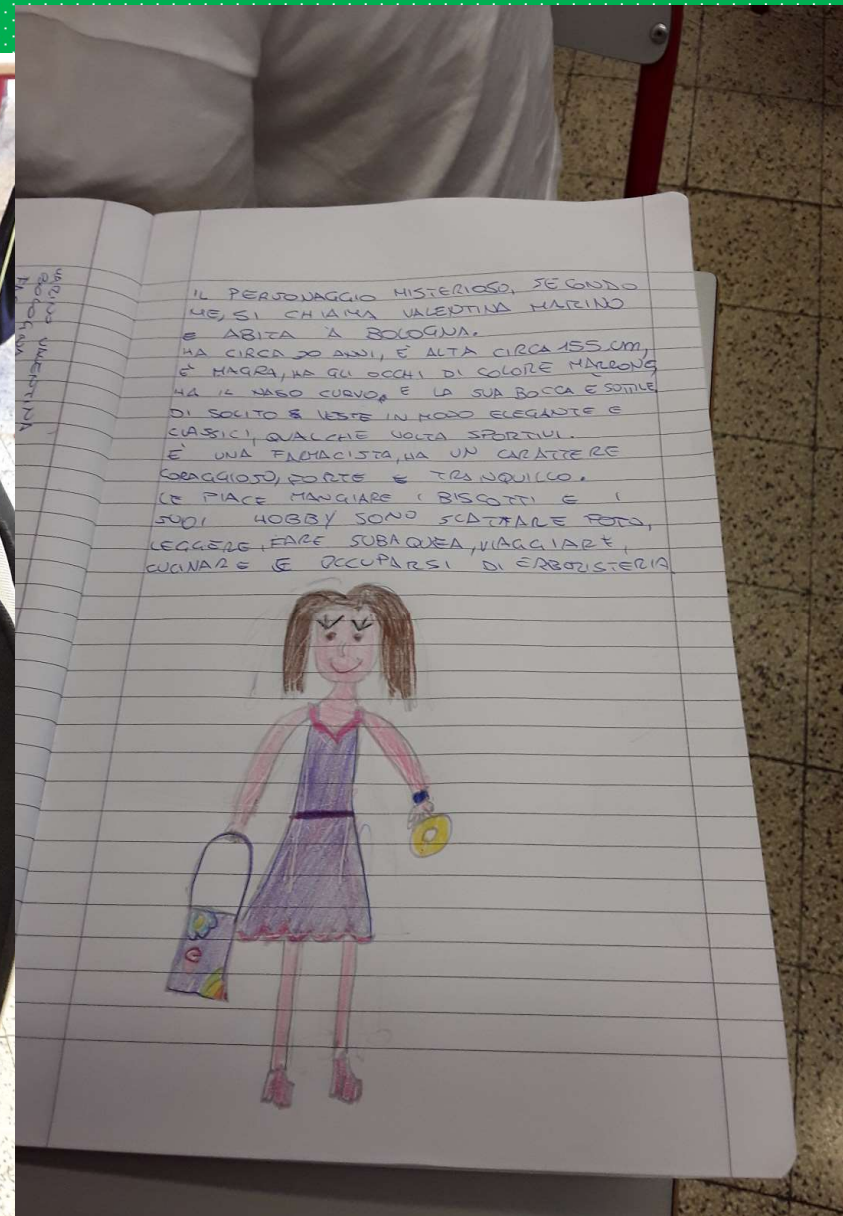 IL PERSONAGGIO MISTERIOSO, SECONDO
ME, SI CHIAMA VALENTINA MARINO
E ABITA A BOLOGNA.
HA CIRCA 20 ANNI, È ALTA CIRCA 155 cm,
È MAGRA, HA GLI OCCHI DI COLORE MARRONE,
HA IL NASO CURVO, E LA SUA BOCCA È SOTTILE
DI SOLITO VESTE IN MODO ELEGANTE E
CLASSICI, QUALCHE VOLTA SPORTIVI.
È UNA FARMACISTA, HA UN CARATTERE
CORAGGIOSO, FORTE E TRANQUILLO.
LE PIACE MANGIARE I BISCOTTI E I
SUOI HOBBY SONO SCATTARE FOTO,
LEGGERE, FARE SUBAQUEA, VIAGGIARE,
CUCINARE E OCCUPARSI DI ERBORISTERIA
MARINO VALENTINA
BOLOGNA